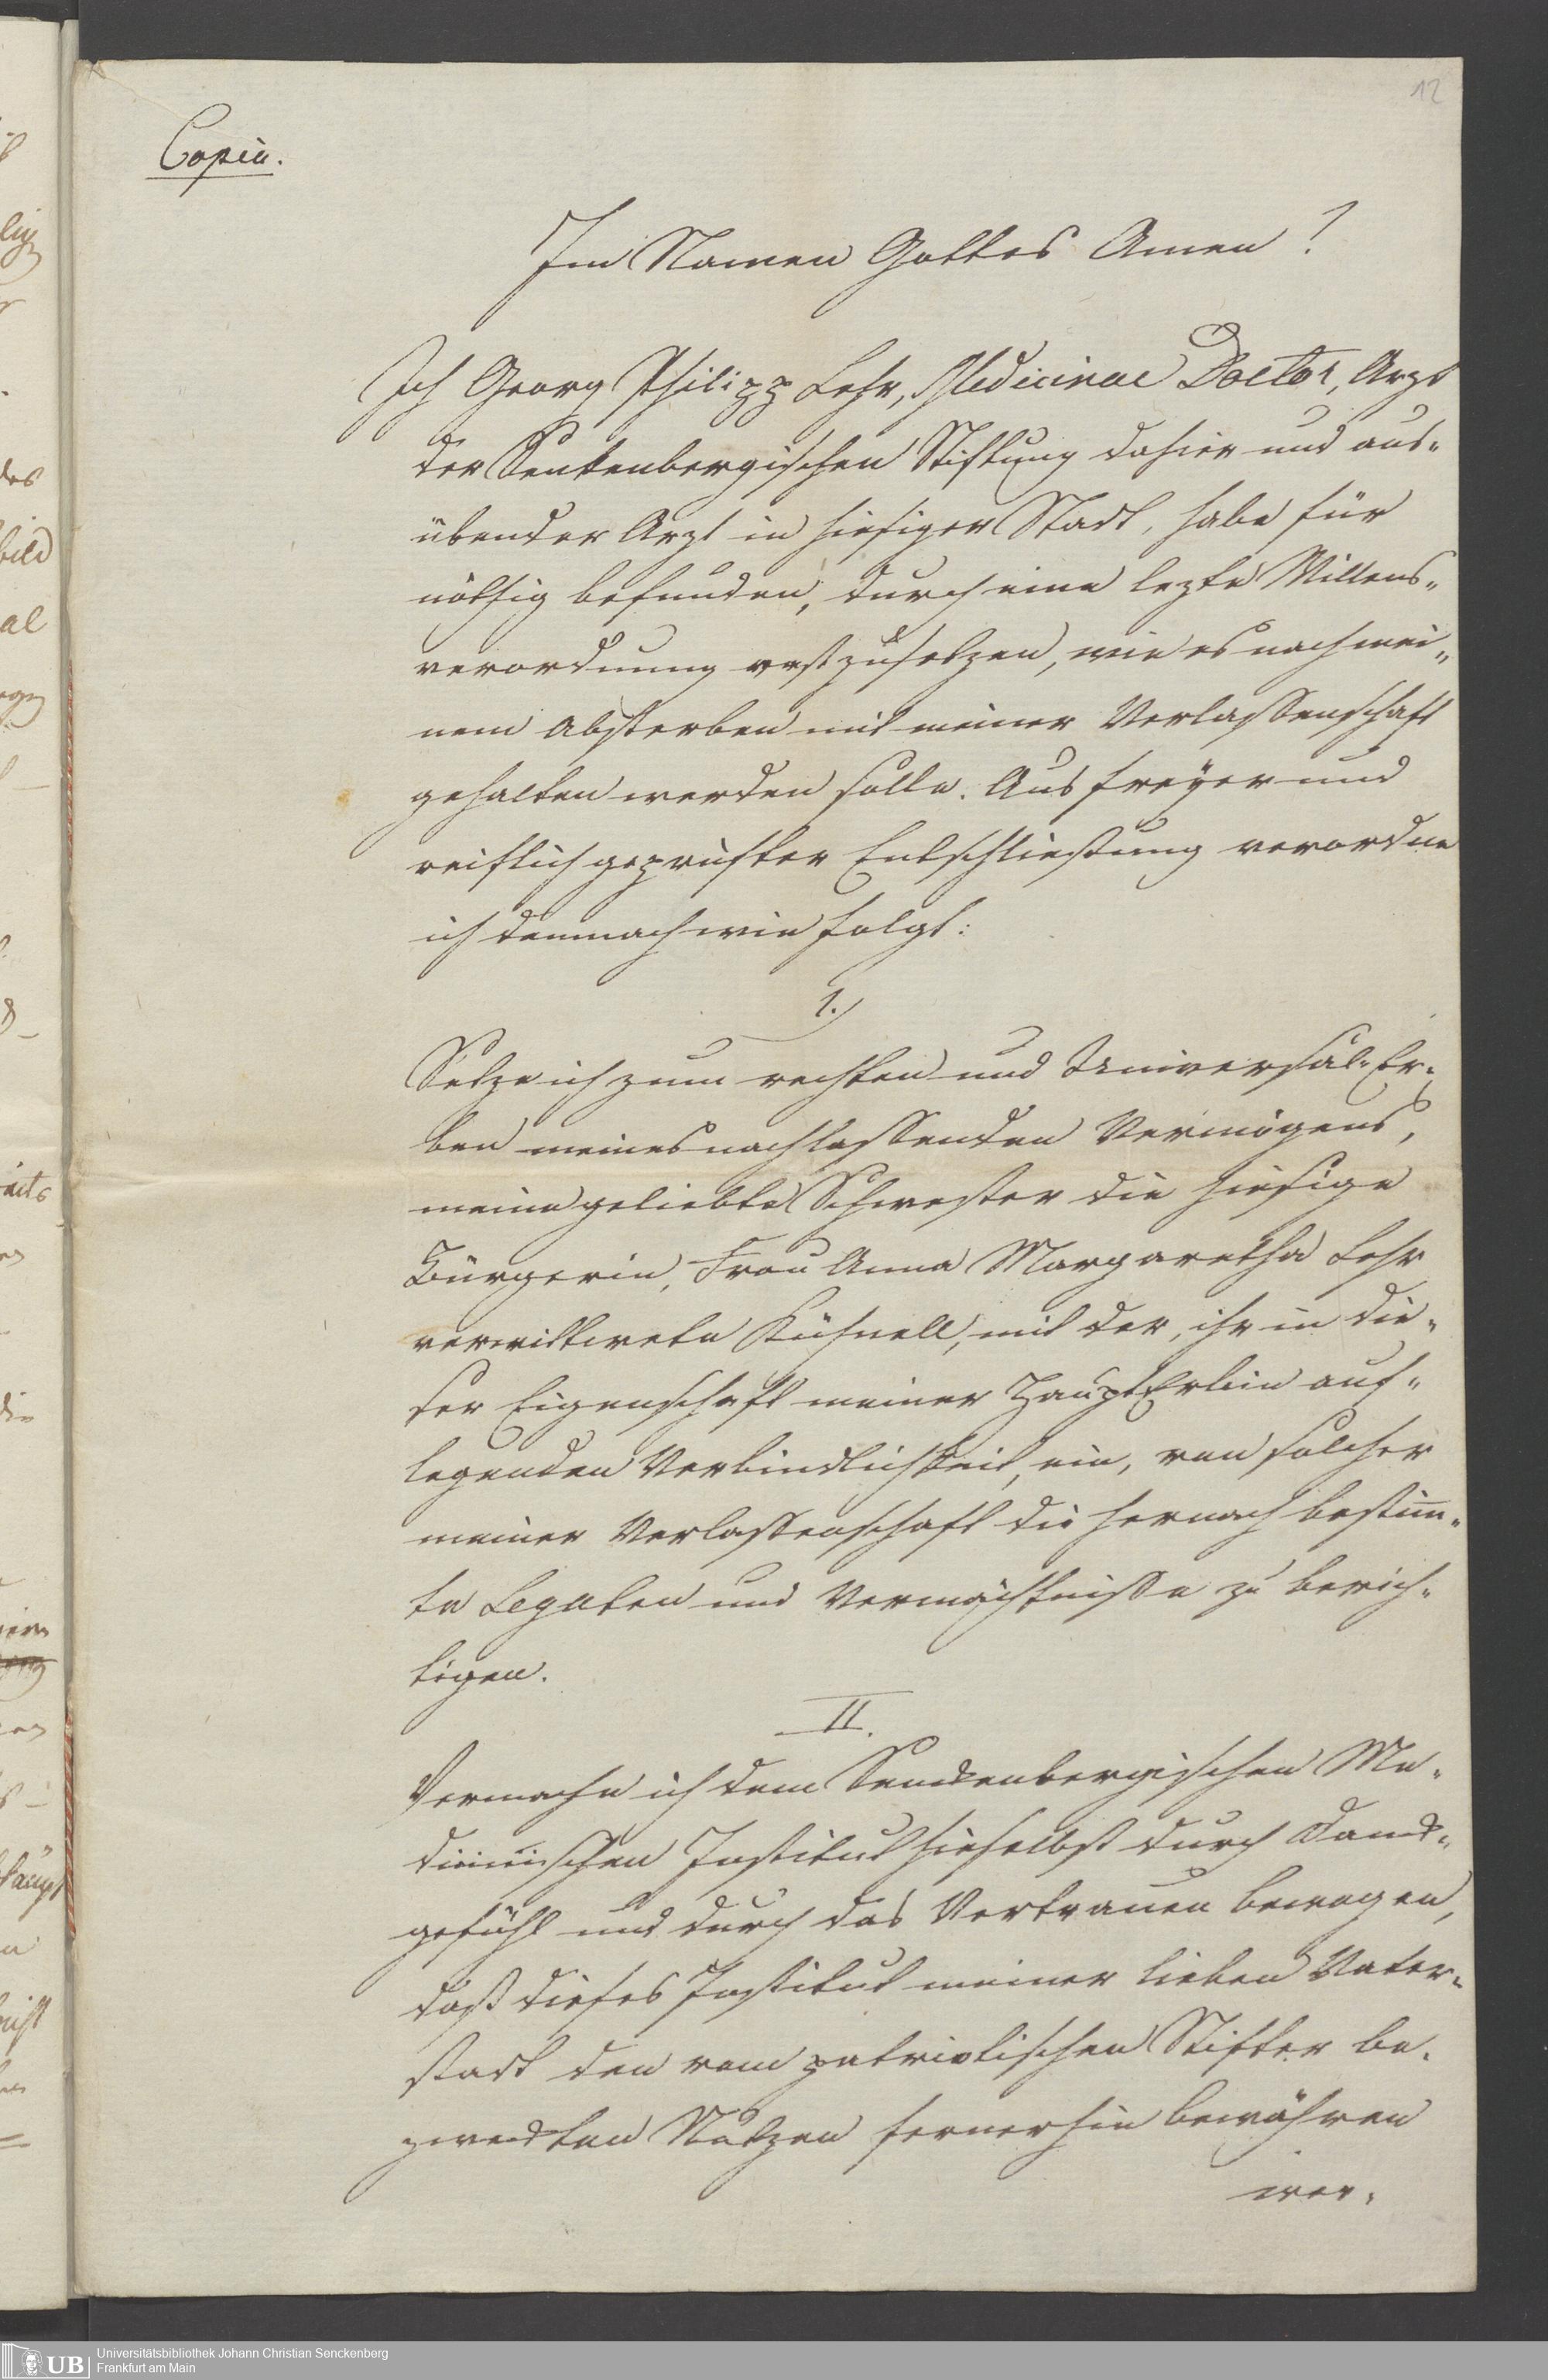 12
Copia.
Im Namen Gottes Amen!
Ich Georg Philipp Lehr, Medicinae Doctor, Arzt
der Senkenbergischen Stiftung dahier und aus-
übender Arzt in hiesiger Stadt, habe für
nöthig befunden, durch eine lezte Willens-
verordnung vestzusetzen, wie es nach mei-
nem Absterben mit meiner Verlassenschaft
gehalten werden solle. Aus freyer und
reiflich geprüfter Entschließung verordne
ich demnach wie folgt:
1.)
Setze ich zum rechten und Universal-Er-
ben meines nachlassenden Vermögens,
meine geliebte Schwester die hiesige
Bürgerin, Frau Anna Margaretha Lehr
verwittwete Küchnell, mit der, ihr in die-
ser Eigenschaft meiner HauptErbin auf-
legenden Verbindlichkeit, ein, von solcher
meiner Verlassenschaft die hernach bestim̄-
te Legaten und Vermächtnisse zu berich-
tigen.
II.
Vermache ich dem Senckenbergischen Me-
dicinischen Institut hieselbst durch Dank-
gefühl und durch das Vertrauen bewogen,
daß dieses Institut meiner lieben Vater-
stadt den vom patriotischen Stifter be-
zweckten Nutzen fernerhin bewähren
wer-
des
bild
al
aits
die
UB
Universitätsbibliothek Johann Christian Senckenberg
Frankfurt am Main